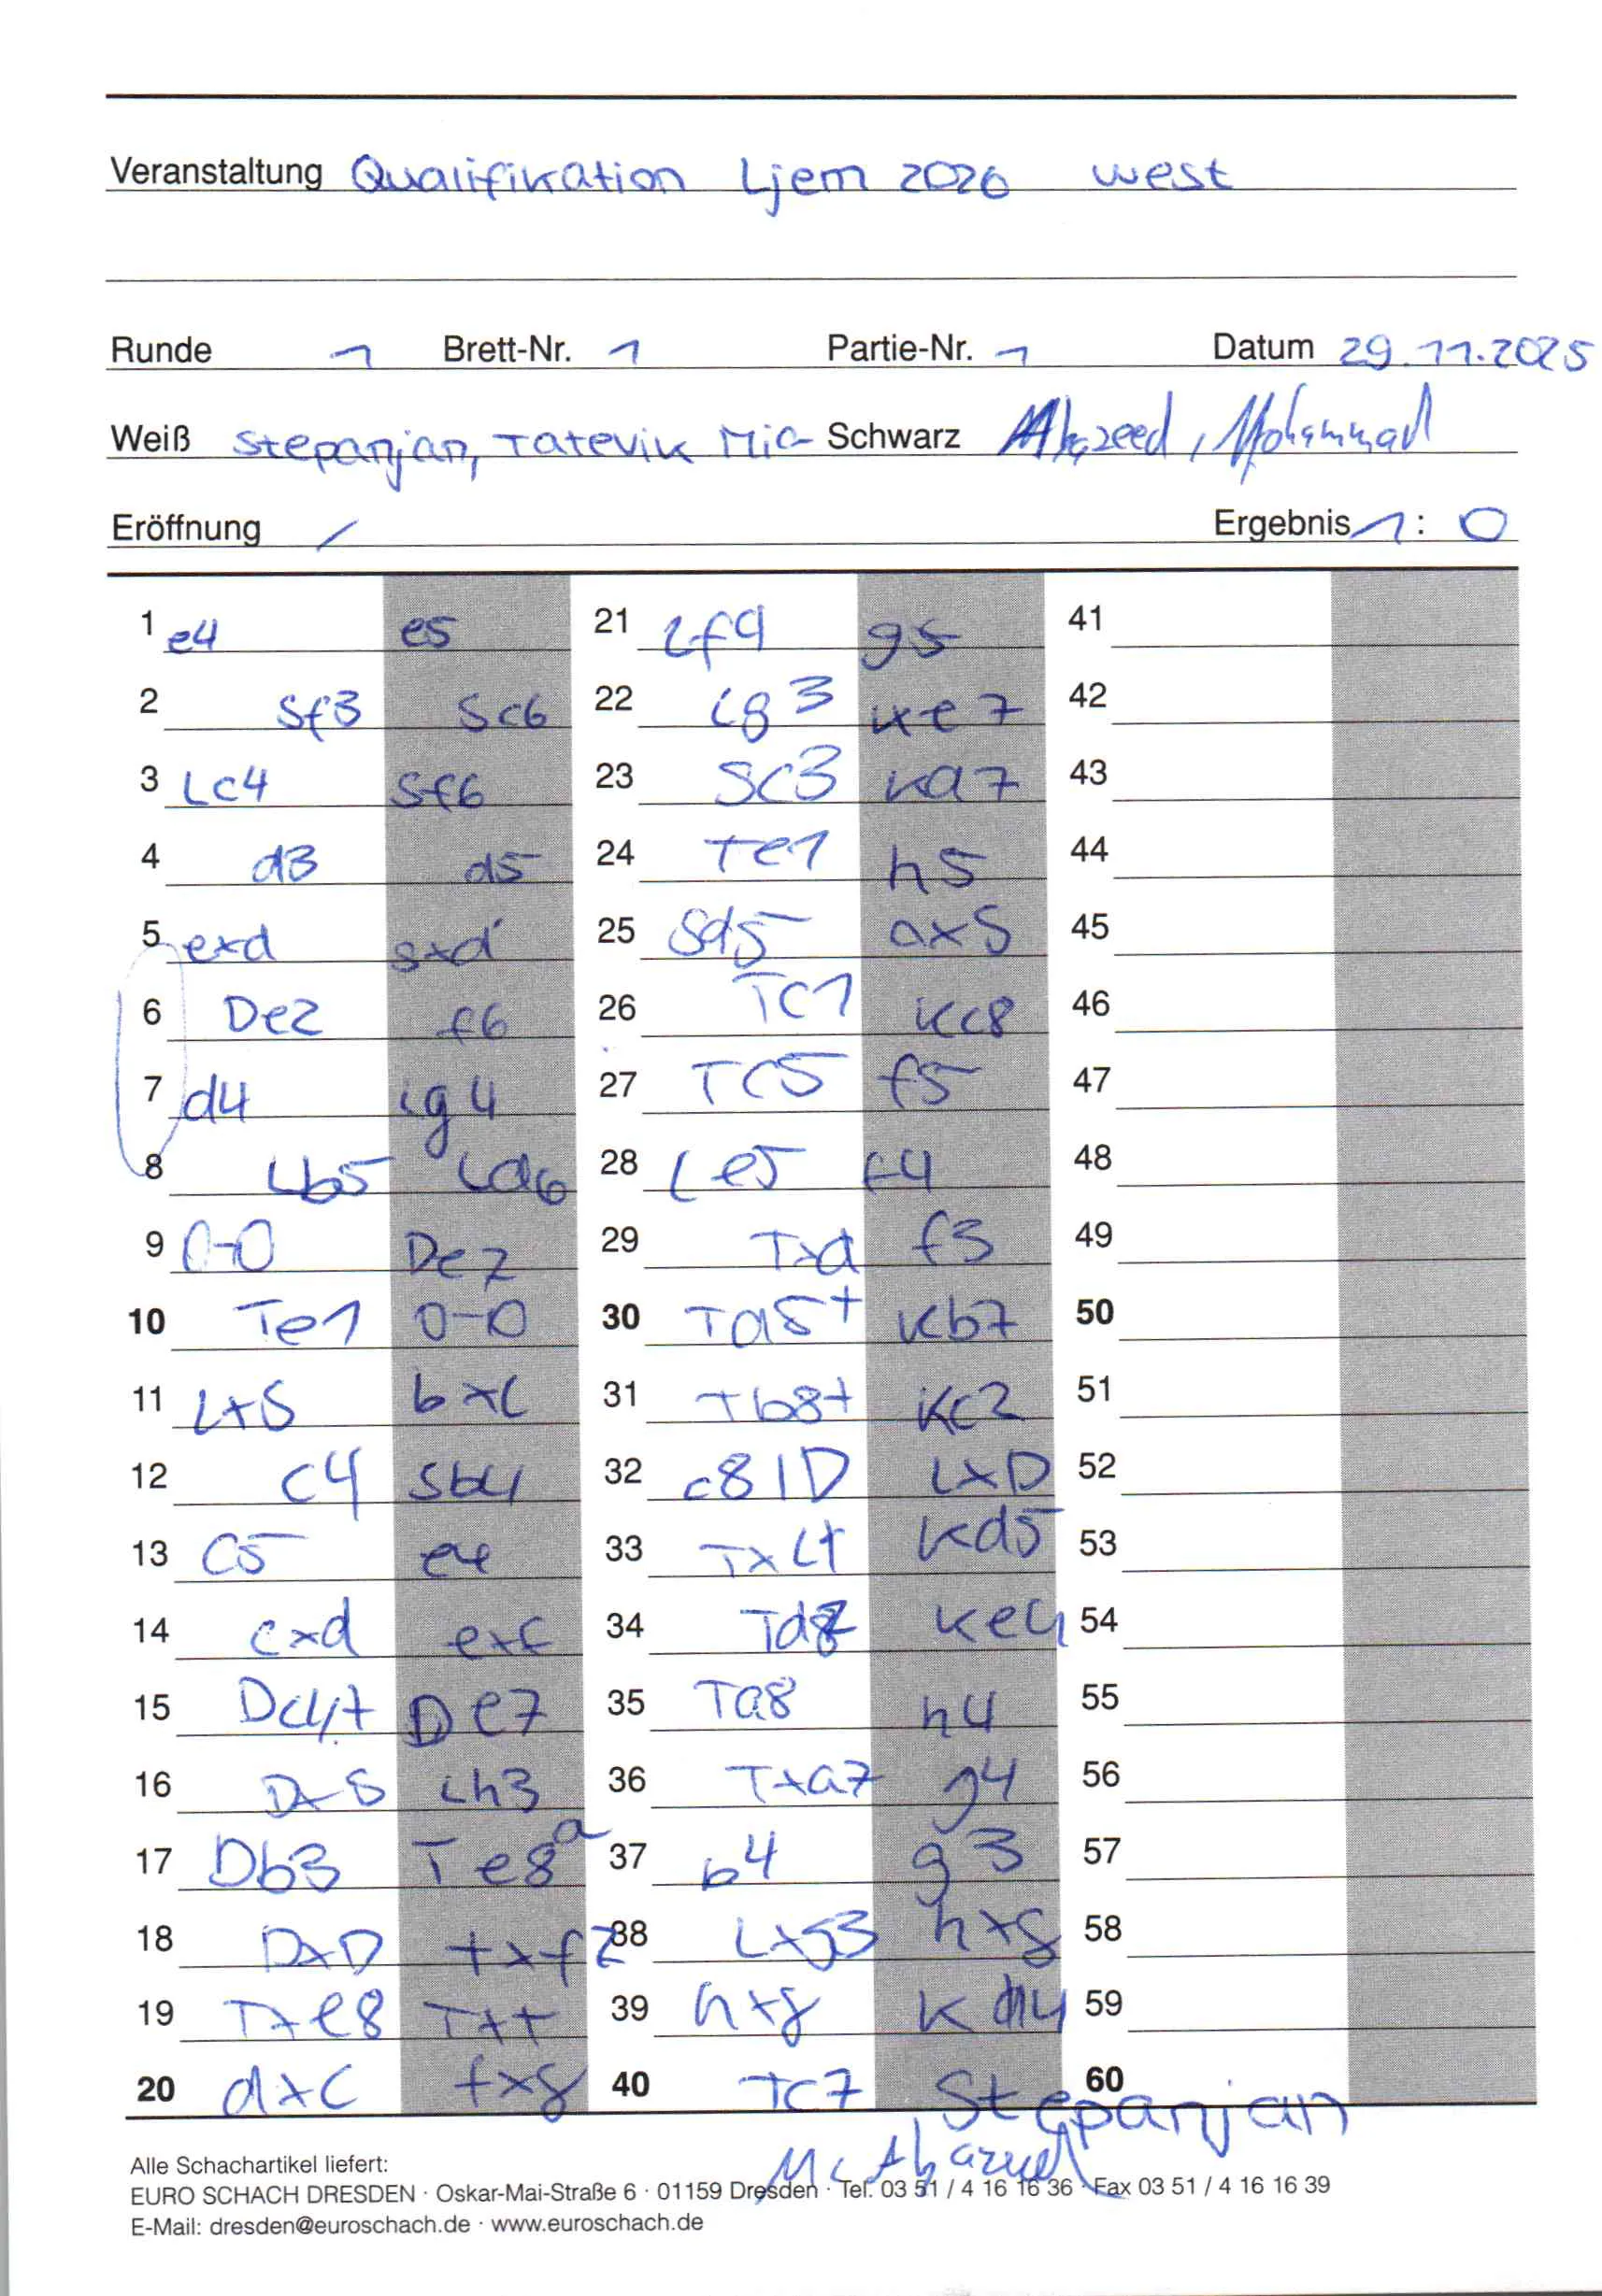 Veranstaltung Qualifikation Ljem 2026 west
Runde 1 Brett-Nr. 1 Partie-Nr. 1 Datum 29.11.2025
Weiß Stepanjan, Tatevik Mic- Schwarz Abazeed, Mohammad
Eröffnung / Ergebnis 1 : 0
1 e4 e5 21 Lf4 g5 41
2 Sf3 Sc6 22 Lg3 xe7 42
3 Lc4 Sf6 23 Sc3 Kd7 43
4 d3 d5 24 Te1 h5 44
5 exd sxd 25 Sd5 axS 45
6 De2 f6 26 Tc1 Kc8 46
7 d4 Lg4 27 Tc5 f5 47
8 Lb5 Ld6 28 Le5 f4 48
9 0-0 De7 29 Txd f3 49
10 Te1 0-0 30 Ta5+ Kb7 50
11 LxS bxc 31 Tb8+ Kc2 51
12 c4 Sb4 32 c8 D LxD 52
13 c5 e4 33 TxL+ Kd5 53
14 cxd exf 34 Td8 Ke4 54
15 Dc4+ De7 35 Ta8 h4 55
16 DxS Lh3 36 Txa7 g4 56
17 Db3 Te8 a 37 b4 g3 57
18 DxD txf2 38 Lxg3 hxg 58
19 Txe8 TxT 39 hxg Kd4 59
20 dxc fxg 40 Tc7 60
Stepanjan
Alle Schachartikel liefert:
EURO SCHACH DRESDEN · Oskar-Mai-Straße 6 · 01159 Dresden · Tel. 03 51 / 4 16 16 36 · Fax 03 51 / 4 16 16 39
E-Mail: dresden@euroschach.de · www.euroschach.de